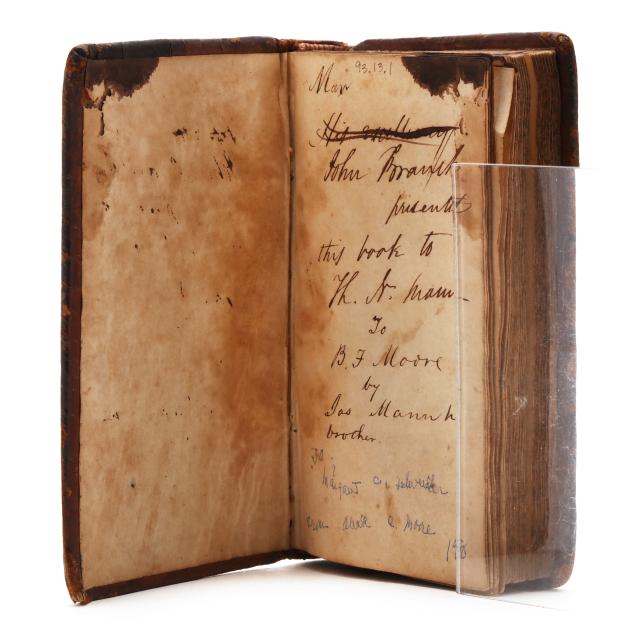 93.13.1
John Branch
presented
this book to
Th. N. Mann
To
B. F Moore
by
Jas Mann h
brother.
C. Moore